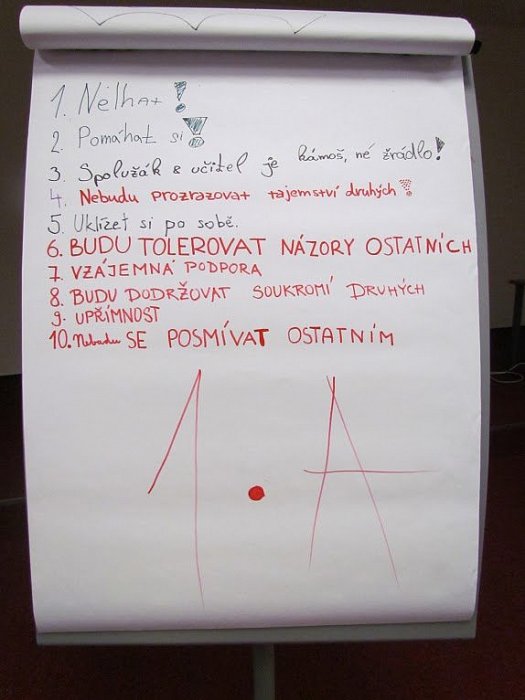 1. Nelhat!
2. Pomáhat si!
3. Spolužák & učitel je kámoš, né žrádlo!
4. Nebudu prozrazovat tajemství druhých!
5. Uklízet si po sobě.
6. BUDU TOLEROVAT NÁZORY OSTATNÍCH
7. VZÁJEMNÁ PODPORA
8. BUDU DODRŽOVAT SOUKROMÍ DRUHÝCH
9. UPŘÍMNOST
10. Nebudu SE POSMÍVAT OSTATNÍM
1.A